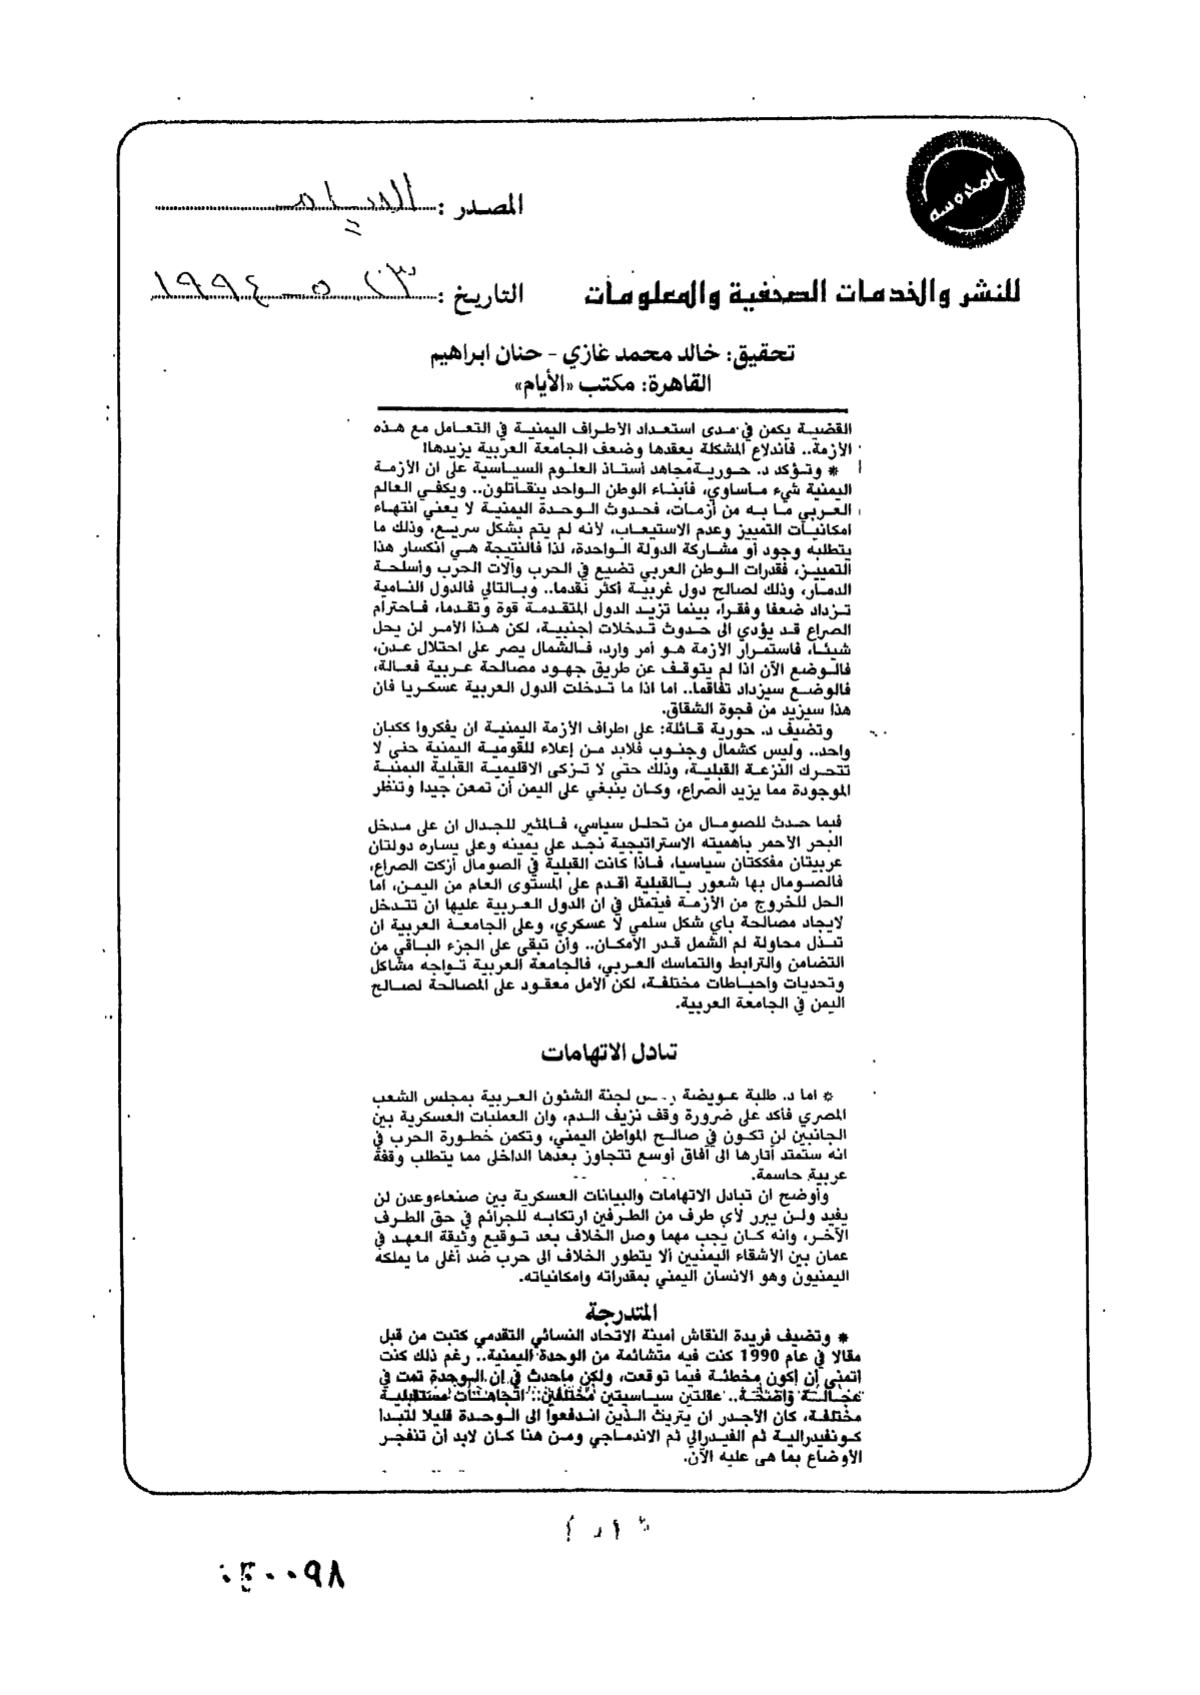 المحروسة
المصدر : الأيام
للنشر والخدمات الصحفية والمعلومات
التاريخ : ٥ - ١٩٩٤
تحقيق: خالد محمد غازي - حنان ابراهيم
القاهرة: مكتب «الأيام»
القضية يكمن في مدى استعداد الأطراف اليمنية في التعامل مع هذه
الأزمة.. فاندلاع المشكلة يعقدها وضعف الجامعة العربية يزيدها!
* وتؤكد د. حورية مجاهد أستاذ العلوم السياسية على ان الأزمة
اليمنية شيء مأساوي، فأبناء الوطن الواحد يتقاتلون.. ويكفي العالم
العربي ما به من أزمات، فحدوث الوحدة اليمنية لا يعني انتهاء
امكانيات التمييز وعدم الاستيعاب، لأنه لم يتم بشكل سريع، وذلك ما
يتطلبه وجود أو مشاركة الدولة الواحدة، لذا فالنتيجة هي انكسار هذا
التمييز، فقدرات الوطن العربي تضيع في الحرب وآلات الحرب وأسلحة
الدمار، وذلك لصالح دول غربية أكثر تقدما.. وبالتالي فالدول النامية
تزداد ضعفا وفقرا، بينما تزيد الدول المتقدمة قوة وتقدما، فاحترام
الصراع قد يؤدي الى حدوث تدخلات أجنبية، لكن هذا الأمر لن يحل
شيئا، فاستمرار الأزمة هو أمر وارد، فالشمال يصر على احتلال عدن،
فالوضع الآن اذا لم يتوقف عن طريق جهود مصالحة عربية فعالة،
فالوضع سيزداد تفاقما.. اما اذا ما تدخلت الدول العربية عسكريا فان
هذا سيزيد من فجوة الشقاق.
وتضيف د. حورية قائلة: على اطراف الأزمة اليمنية ان يفكروا ككيان
واحد.. وليس كشمال وجنوب فلابد من إعلاء للقومية اليمنية حتى لا
تتحرك النزعة القبلية، وذلك حتى لا تزكى الاقليمية القبلية اليمنية
الموجودة مما يزيد الصراع، وكان ينبغي على اليمن أن تمعن جيدا وتنظر
فيما حدث للصومال من تحلل سياسي، فالمثير للجدال ان على مدخل
البحر الأحمر باهميته الاستراتيجية نجد على يمينه وعلى يساره دولتان
عربيتان مفككتان سياسيا، فاذا كانت القبلية في الصومال أزكت الصراع،
فالصومال بها شعور بالقبلية أقدم على المستوى العام من اليمن، اما
الحل للخروج من الأزمة فيتمثل في ان الدول العربية عليها ان تتدخل
لايجاد مصالحة بأي شكل سلمي لا عسكري، وعلى الجامعة العربية ان
تبذل محاولة لم الشمل قدر الأمكان.. وأن تبقى على الجزء الباقي من
التضامن والترابط والتماسك العربي، فالجامعة العربية تواجه مشاكل
وتحديات واحباطات مختلفة، لكن الأمل معقود على المصالحة لصالح
اليمن في الجامعة العربية.
تبادل الاتهامات
* اما د. طلبة عويضة لجنة الشئون العربية بمجلس الشعب
المصري فأكد على ضرورة وقف نزيف الدم، وان العمليات العسكرية بين
الجانبين لن تكون في صالح المواطن اليمني، وتكمن خطورة الحرب في
انه ستمتد آثارها الى آفاق أوسع تتجاوز بعدها الداخلى مما يتطلب وقفة
عربية حاسمة.
وأوضح ان تبادل الاتهامات والبيانات العسكرية بين صنعاء وعدن لن
يفيد ولن يبرر لأي طرف من الطرفين ارتكابه للجرائم في حق الطرف
الآخر، وانه كان يجب مهما وصل الخلاف بعد توقيع وثيقة العهد في
عمان بين الأشقاء اليمنيين ألا يتطور الخلاف الى حرب ضد أغلى ما يملكه
اليمنيون وهو الانسان اليمني بمقدراته وامكانياته.
المتدرجة
* وتضيف فريدة النقاش أمينة الاتحاد النسائي التقدمي كتبت من قبل
مقالا في عام 1990 كنت فيه متشائمة من الوحدة اليمنية.. رغم ذلك كنت
اتمنى أن أكون مخطئة فيما توقعت، ولكن ماحدث في ان الوحدة تمت في
عجالة واضحة.. عقلتين سياسيتين مختلفين.. اتجاهات مستقبلية
مختلفة، كان الأجدر ان يتريث الذين اندفعوا الى الوحدة قليلا لتبدأ
كونفيدرالية ثم الفيدرالي ثم الاندماجي ومن هنا كان لابد أن تنفجر
الأوضاع بما هى عليه الآن.